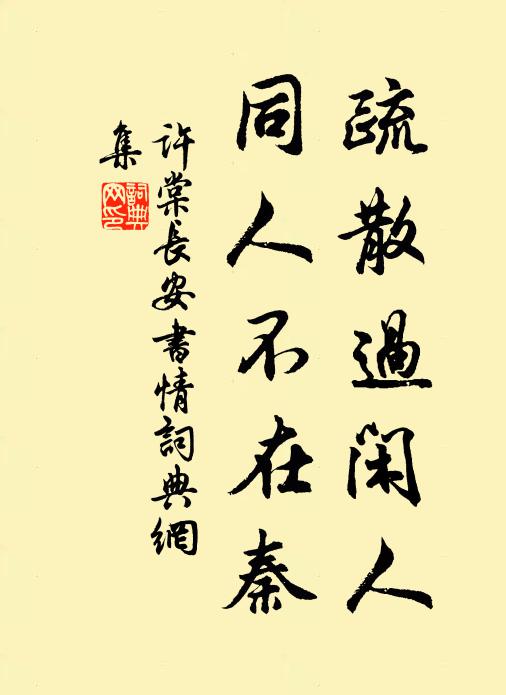 疏散過閑人
同人不在秦
許棠長安書情詞典網
集
詞典
网印